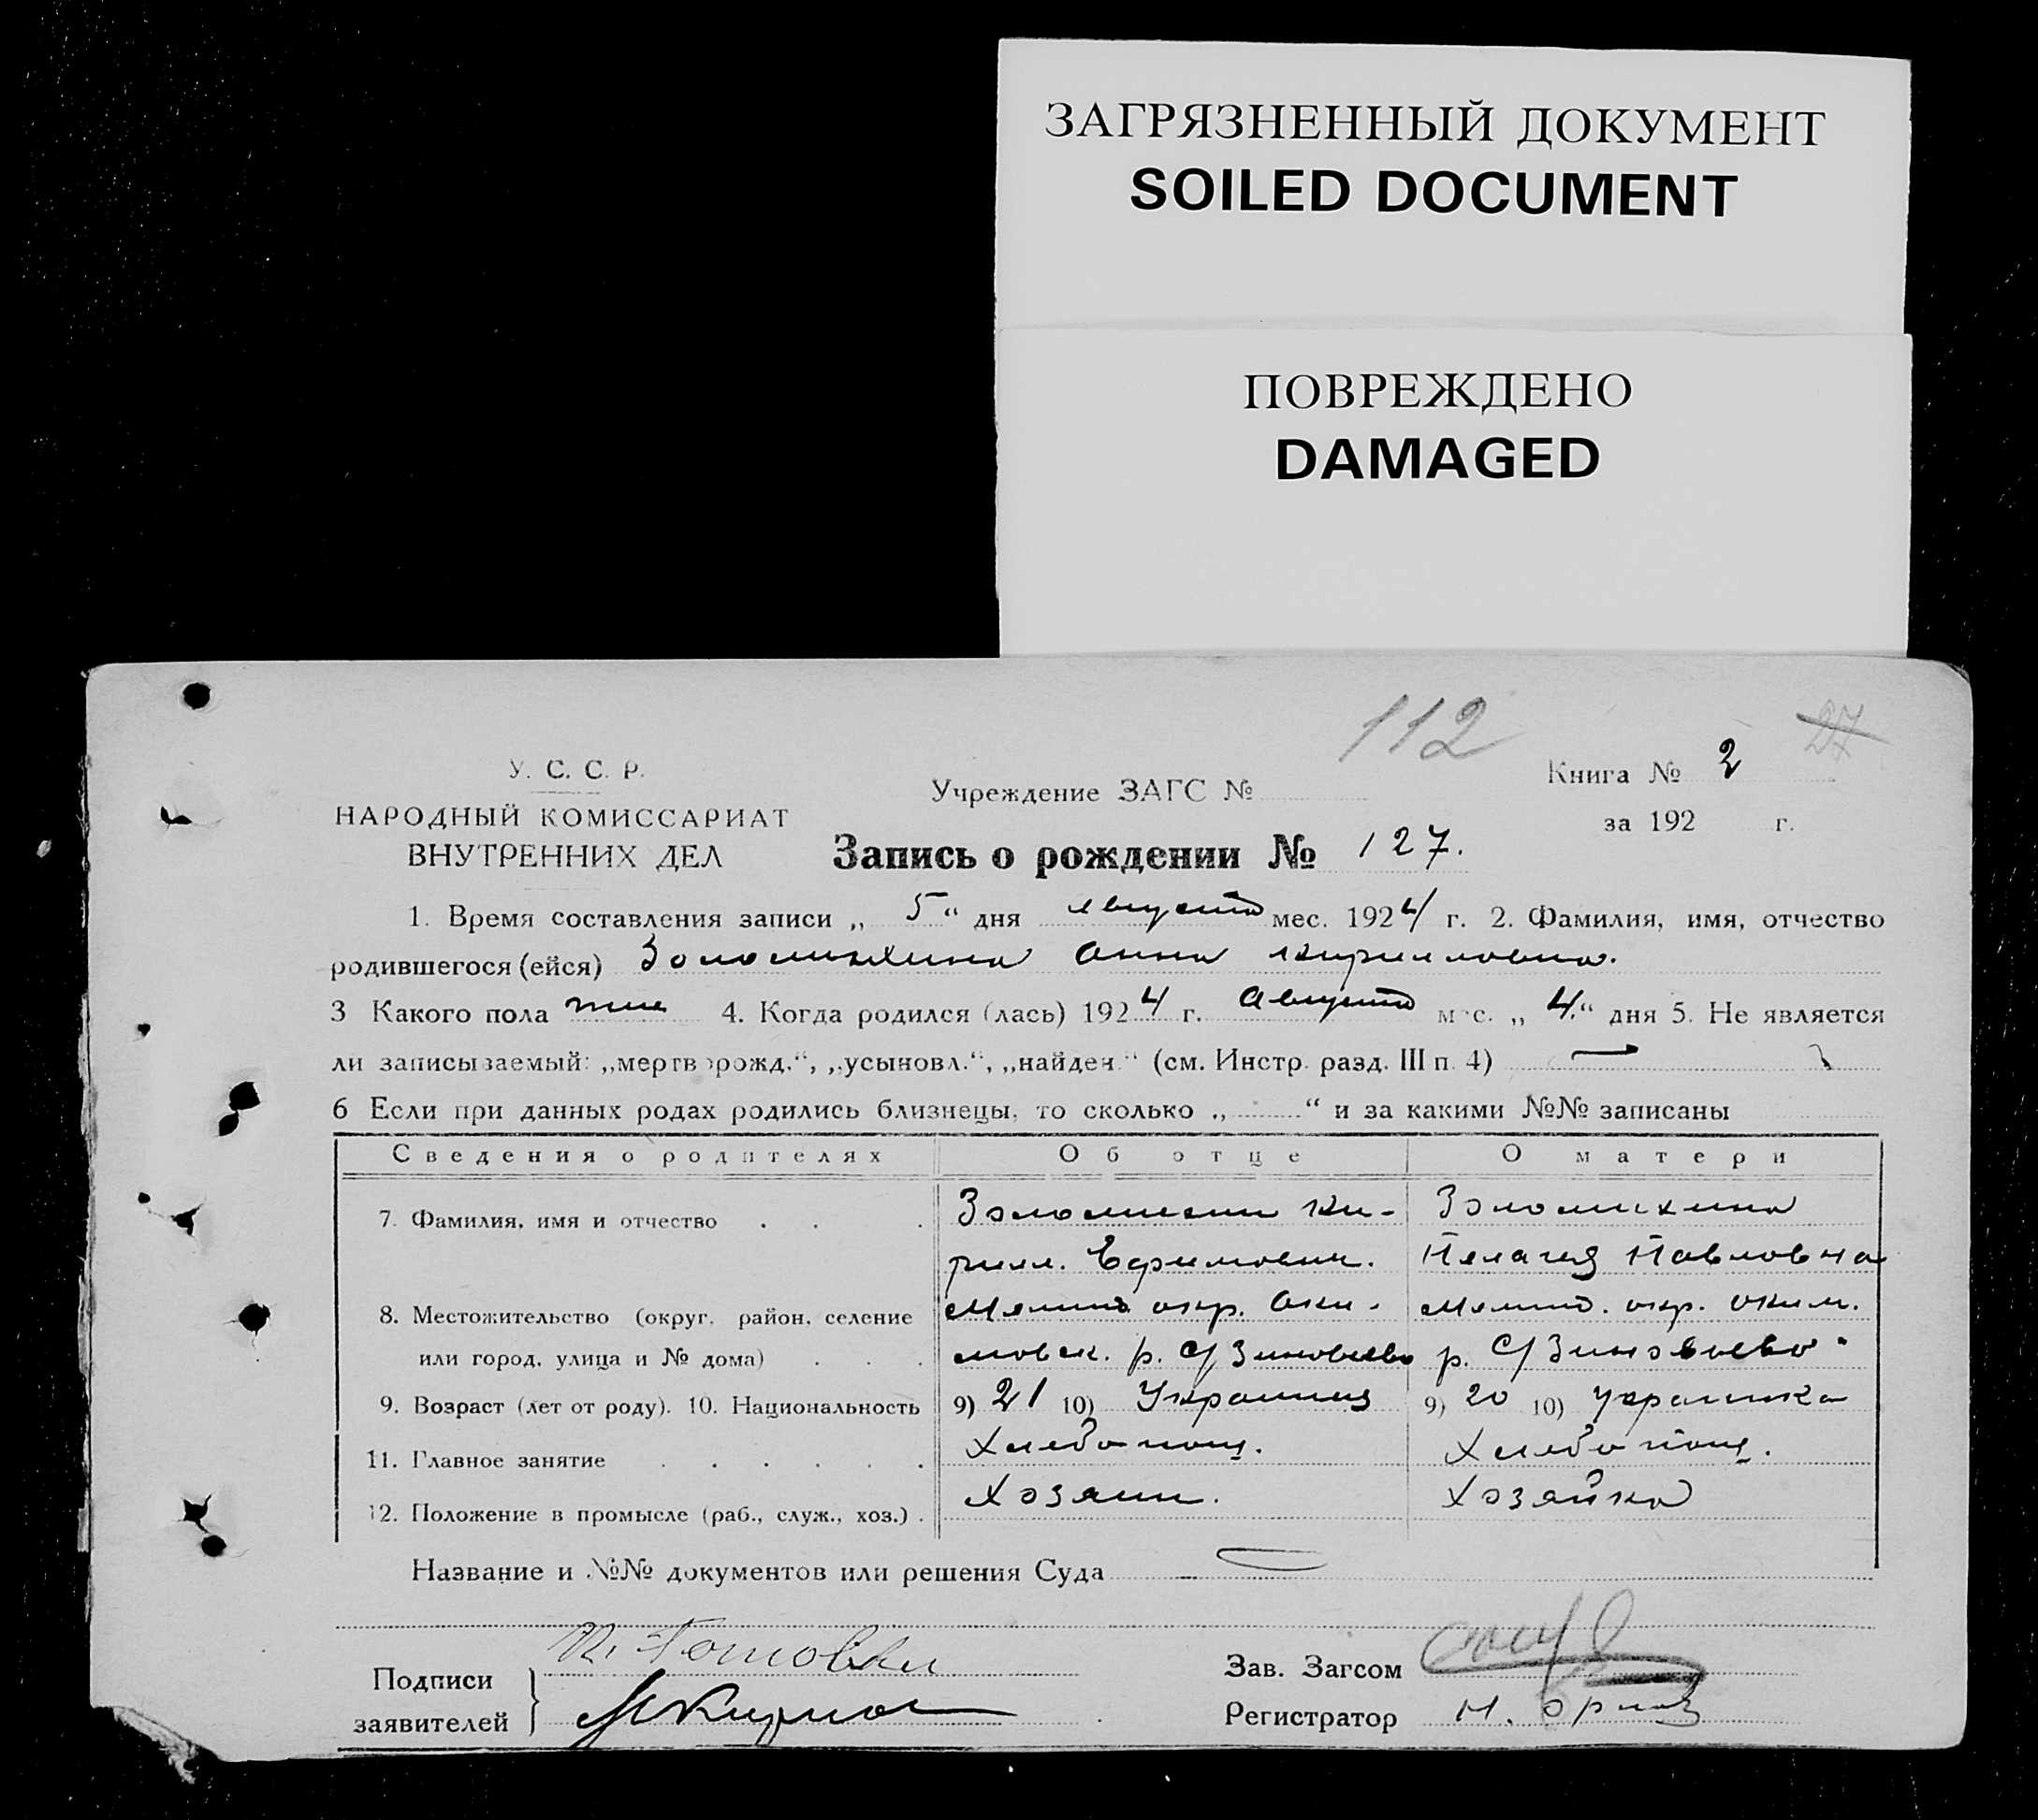 ЗАГРЯЗНЕННЫЙ ДОКУМЕНТ
SOILED DOCUMENT
ПОВРЕЖДЕНО
DAMAGED
112 27
У. С. С. Р.
НАРОДНЫЙ КОМИССАРИАТ
ВНУТРЕННИХ ДЕЛ
Учреждение ЗАГС №
Книга № 2
за 192 г.
Запись о рождении № 127.
1. Время составления записи „ 5 “ дня августа мес. 1924 г. 2. Фамилия, имя, отчество
родившегося (ейся) Анна Кирилловна.
3 Какого пола 4. Когда родился (лась) 1924 г. Августа мес. „ 4. “ дня 5. Не является
ли записываемый: „мертворожд.“, „усыновл.“, „найден.“ (см. Инстр. разд. III п. 4)
6 Если при данных родах родились близнецы, то сколько „ “ и за какими №№ записаны
Сведения о родителях Об отце О матери
7. Фамилия, имя и отчество Ки- 
рилл. Ефимович. Пелагея Павловна
8. Местожительство (округ. район, селение Мелит. окр. Аки- Мелит. окр. Аким.
или город, улица и № дома) мовск. р. С/Зиновьево р. С/Зиновьево
9. Возраст (лет от роду). 10. Национальность 9) 21 10) Украинец 9) 20 10) Украинка
11. Главное занятие Хлебопаш. Хлебопаш.
12. Положение в промысле (раб., служ., хоз.) Хозяин. Хозяйка
Название и №№ документов или решения Суда
Подписи
заявителей
Зав. Загсом
Регистратор